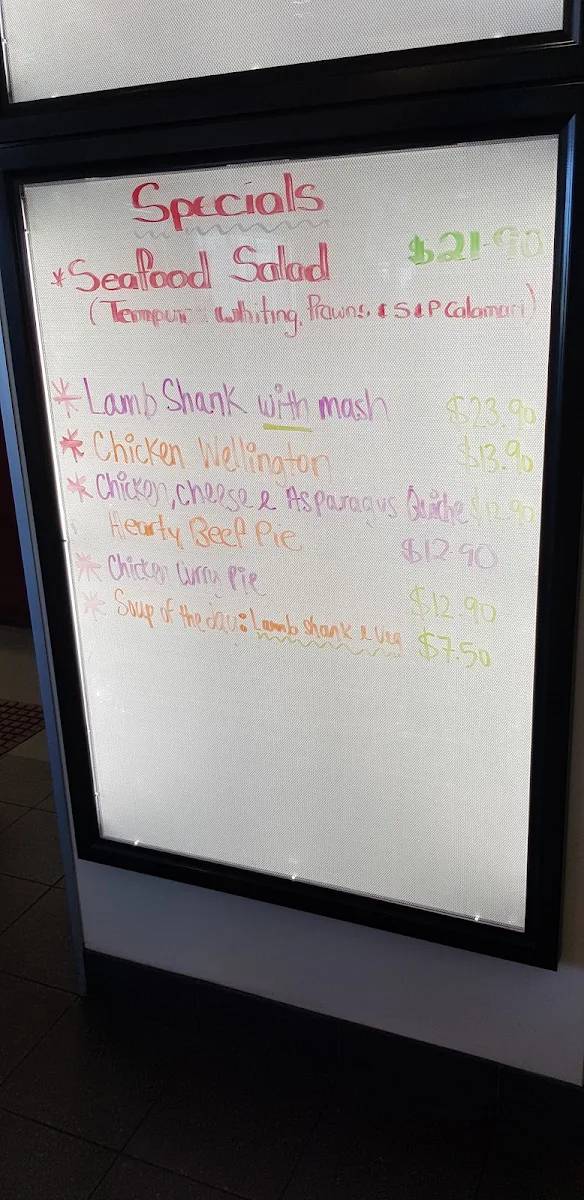 Specials
*Seafood Salad $21.90
(Tempura Whiting, Prawns, & S&P Calamari)
* Lamb Shank with mash $23.90
* Chicken Wellington $13.90
* Chicken, cheese & Asparagus Quiche $12.90
Hearty Beef Pie $12.90
* Chicken Curry Pie $12.90
* Soup of the day: Lamb shank & Veg $7.50